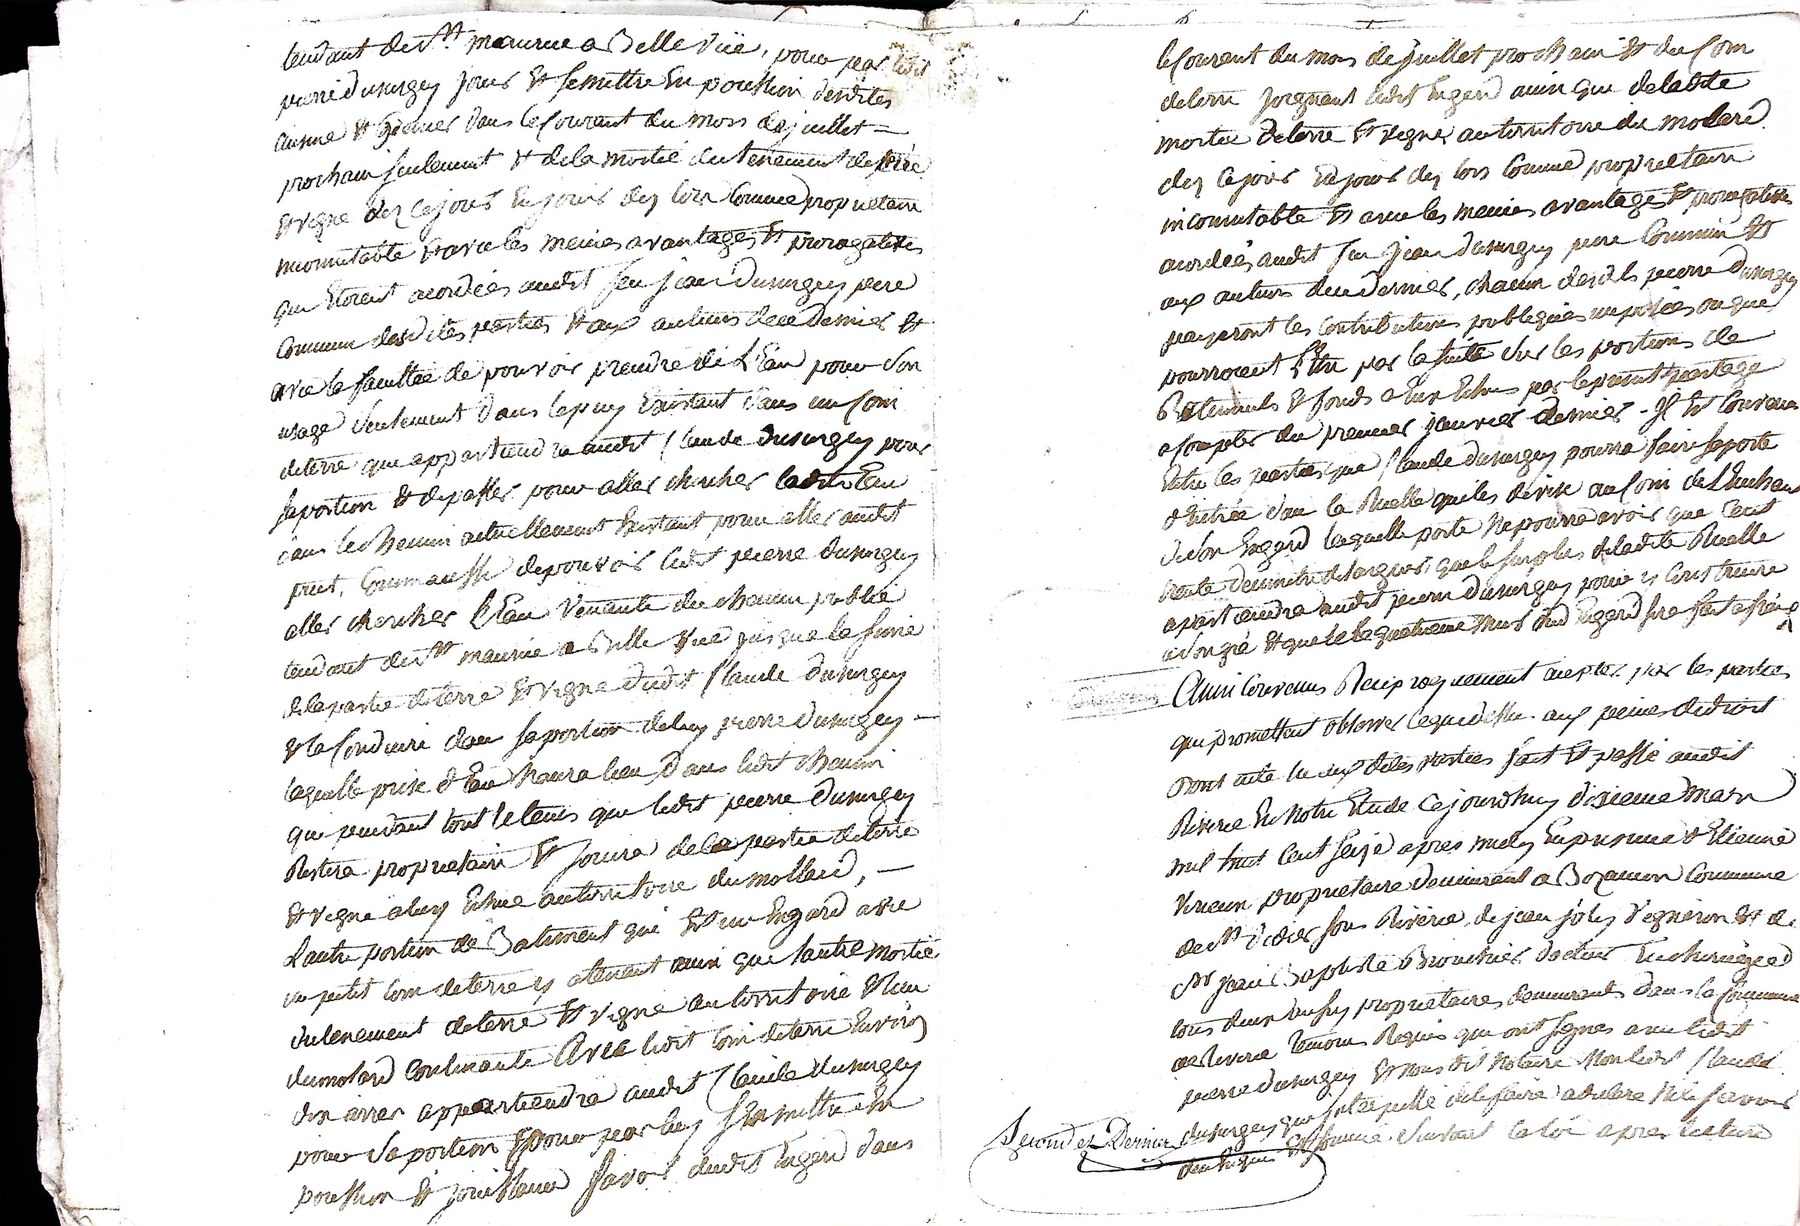 tendant de St. maurice a Belle vüe, pour par ledit
pierre dusurgey jouir et se mettre En possession desdites
prochain seulement et de la moitié du tenement de terre
et vigne dez ce jour En jouir dez lors Comme propriétaire
incomutable et avec les memes avantages et prerogatives
qui Etoient acordées audit feu jean dusurgey pere
Commun desdites parties et aux auteurs de ce dernier et
avec la facultée de pouvoir prendre de L'Eau pour son
usage seulement dans le puy Existant dans un Coin
de terre qui appartiendra audit Claude dusurgey pour
sa portion et de passer pour aller chercher ladite Eau
dans le chemin actuellement Existant pour aller audit
puit, Comm'aussi de pouvoir ledit pierre dusurgey
aller chercher l'Eau venante du chemin public
tendant de St maurice a Belle vue jusque la
de la partie de terre et vigne dudit Claude dusurgey
et la Conduire dans sa portion de luy pierre dusurgey —
laquelle prise d'Eau n'aura lieu dans ledit chemin
que pendant tout le tems que ledit pierre dusurgey
Restera propriétaire et jouira de la partie de terre
et vigne a luy Echue au territoire du mollard, —
L'autre portion de Batiment qui Est un Engard avec
un petit Coin de terre y atenant ainsi que l'autre moitié
du tenement de terre et vigne au territoire et lieu
du molard Confinante Avec ledit Coin de terre Environ
dix ares appartiendra audit Claude dusurgey
pour sa portion pour par luy s'En mettre En
possession et jouissance savoir dudit Engard dans
le Courent du mois de juillet prochain et du Coin
de terre joignant ledit Engard ainsi que de ladite
moitié de terre et vigne au territoire du molard
dez ce jour En jouir dez lors Comme propriétaire
incomutable et avec les memes avantages et prerogatives
acordées audit feu jean dusurgey pere Commun et
aux auteurs de ce dernier, chacun desdits pierre dusurgey
payeront les Contributions publiques imposées ou qui
pourroient L'Etre par la suite sur les portions de
Batiments et fonds a Eux Echus par le present partage
a Compter du premier janvier dernier - Il Est Convenu
Entre les parties que Claude dusurgey pourra faire sa porte
d'Entrée dans la Ruelle qui les divise au Coin
de son Engard laquelle porte ne pourra avoir que Cent
trente de largeur, que le surplus de ladite Ruelle
apartiendra audit pierre dusurgey pour y Construire
a son gré et que le quatrieme mur dud Engard sera fait a frais
Ainsi Convenu Reciproquement accepté par les parties
qui promettent observer ce que dessus aux peines de droit
Dont acte lu aux dites parties fait et passé audit
Riverie En notre Etude ce jourd'huy dixieme mars
mil huit Cent seize apres midy En presence d'Etienne
propriétaire demeurant a Commune
de St Didier sous Riverie, de jean joly vigneron et de
Mr jean Baptiste Brouchier docteur En chirurgie
tous deux propriétaires demeurants dans la Commune
de Riverie temoins Requis qui ont signés avec ledit
pierre dusurgey et nous dit Notaire Non ledit Claude
dusurgey qui interpellé de le faire a declaré Ne le savoir
de ce Enquis et sommé suivant la loi apres lecture
Second et Dernier